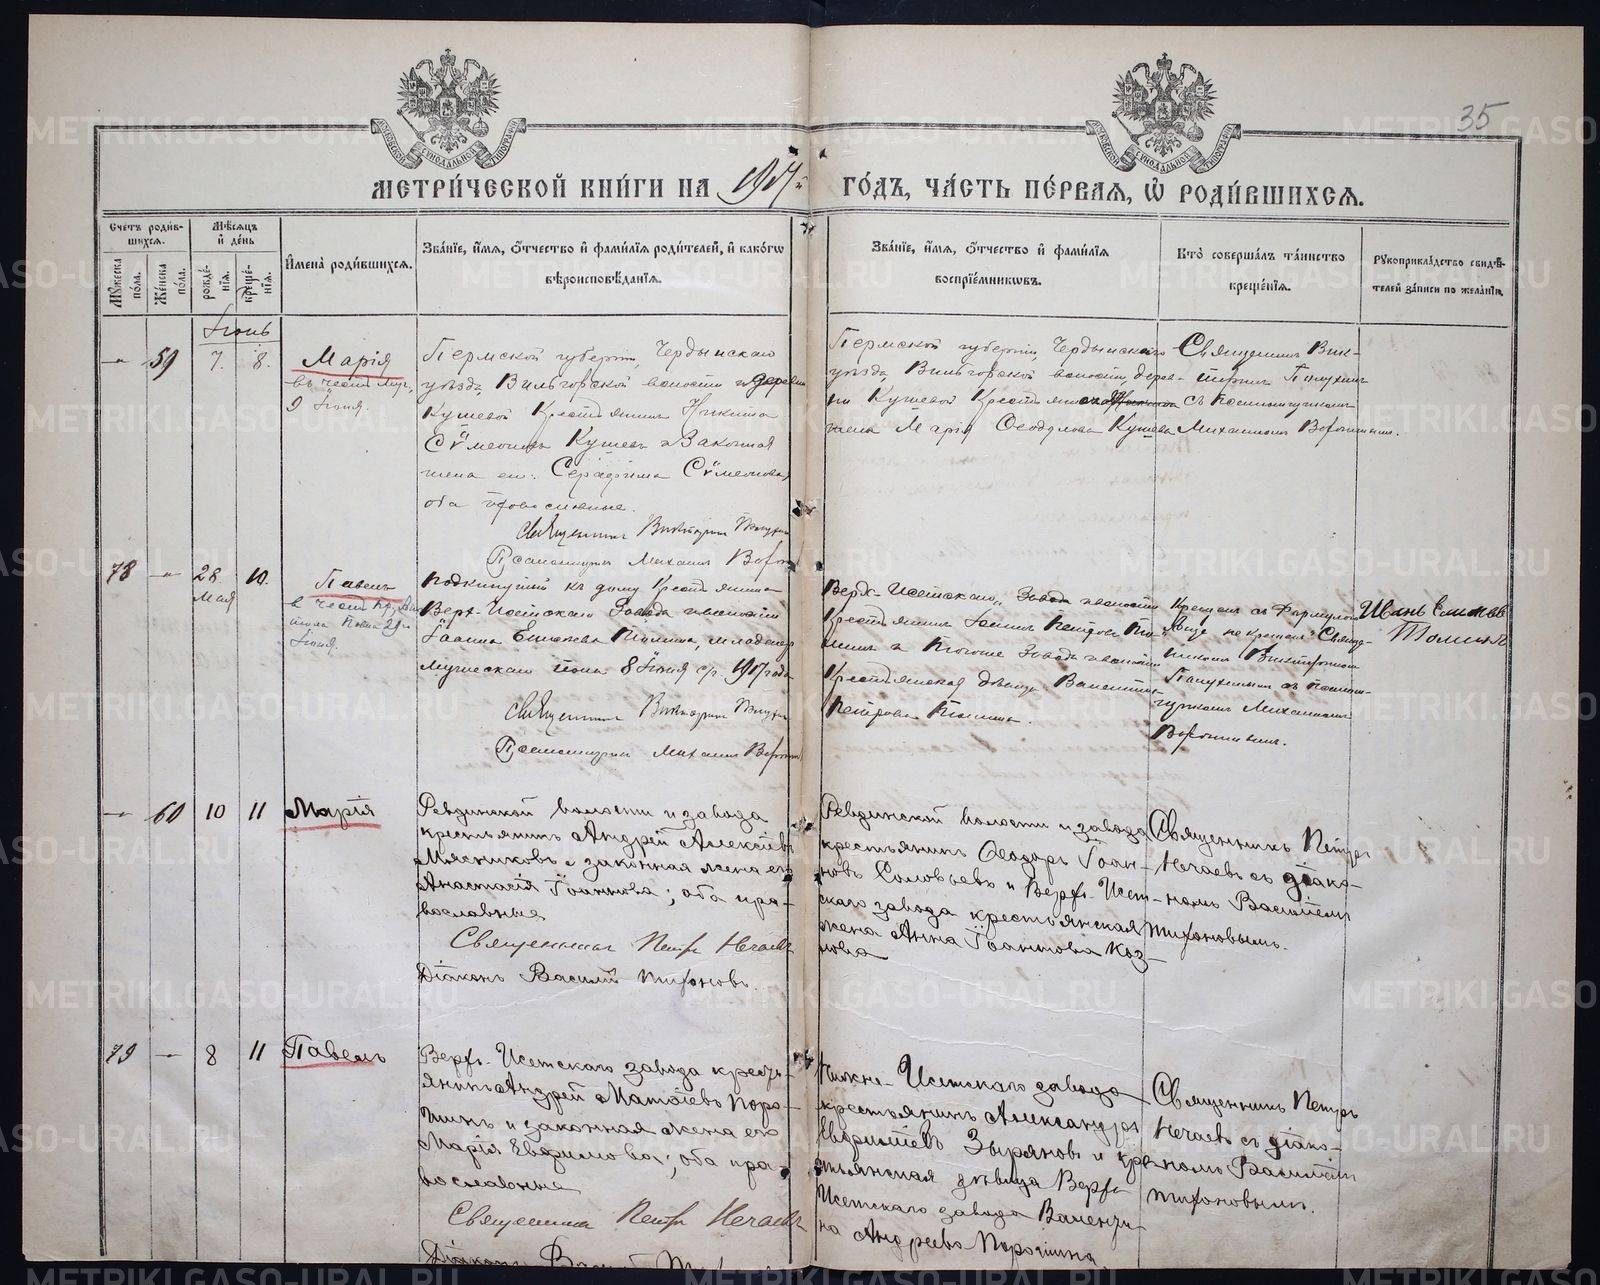 35
МЕТРИ́ЧЕСКОЙ КНИ́ГИ НА 1917й ГО́ДЪ, ЧА́СТЬ ПЕ́РВАЯ, Ѡ РОДИ́ВШИХСЯ.
Счетъ роди́вшихся.
Мꙋжеска по́ла.
Же́нска по́ла.
Мѣ́сяцъ и́ де́нь
рожде́нїя.
креще́нїя.
И҆мена̀ роди́вшихся.
Зва́нїе, и҆́мя, ѻ҆́тчество и҆ фами́лїя роди́телей, и҆ како́гѡ
вѣроисповѣ́данїя.
Зва́нїе, и҆́мя, ѻ҆́тчество и҆ фами́лїя
воспрїе́мникѡвъ.
Кто̀ соверша́лъ та́инство
креще́нїя.
Рꙋкоприкла́дство свидѣ́-
телей за́писи по жела́нїю.
Іюнь
59 7. 8.
Марія
въ честь мур,
9 Іюня.
Пермской губерніи, Чердынскаго
уѣзда, Вильгорской волости деревни
Кушевой Крестьянинъ Никита
Сѵмеоновъ Кушевъ и Законная
жена его: Серафима Сѵмеонова,
оба православные.
Священникъ Викторинъ
Псаломщикъ Михаилъ
Пермской губерніи, Чердынскаго
уѣзда Вильгорской волости, дерев-
ни Кушевой Крестьянская
жена Марія Ѳеодулова Кушева
Священникъ Вик-
торинъ
съ Псаломщикомъ
Михаиломъ
78 28 мая 10.
Павелъ
в честь Ап.
Павла 29го
Іюня.
Подкинутый къ дому Крестьянина
Верх-Исетскаго Завода и волости
Іоанна Томилина, младенецъ
мужескаго пола 8 Іюня с/г 1917 года
Священникъ Викторинъ
Псаломщикъ Михаилъ
Верх-Исетскаго, Завода и волости
Крестьянинъ Іоаннъ Петровъ
Завода и волости
Крестьянская дѣвица Валентина
Петрова
Крещенъ съ формулою
"Аще не крещенъ" Священ-
никомъ Викториномъ
съ Псалом-
щикомъ Михаиломъ
Иванъ
60 10 11
Марія
Ревдинской волости и завода
крестьянинъ Андрей Алексіевъ
Мясниковъ и законная жена его
Анастасія Іоаннова; оба пра-
вославные
Священникъ Петръ Нечаевъ
Діаконъ Василій Тихоновъ.
Ревдинской волости и завода
крестьянинъ Ѳеодоръ Іоан-
новъ Соловьевъ и Верхъ-Исет-
скаго завода крестьянская
жена Анна Іоаннова Коз-
лова
Священникъ Петръ
Нечаевъ съ діако-
номъ Василіемъ
Тихоновымъ.
79 8 11
Павелъ
Верхъ-Исетскаго завода кресть-
янинъ Андрей Матѳіевъ Поро-
шинъ и законная жена его
Марія Евѳимова; оба пра-
вославные
Священникъ Петръ Нечаевъ
Діаконъ
Нижне-Исетскаго завода
крестьянинъ Александръ
Зыряновъ и кре-
стьянская дѣвица Верхъ-
Исетскаго завода Валенти-
на Андреева Порошина
Священникъ Петръ
Нечаевъ съ діако-
номъ Василіемъ
Тихоновымъ.
METRIKI.GASO-URAL.RU